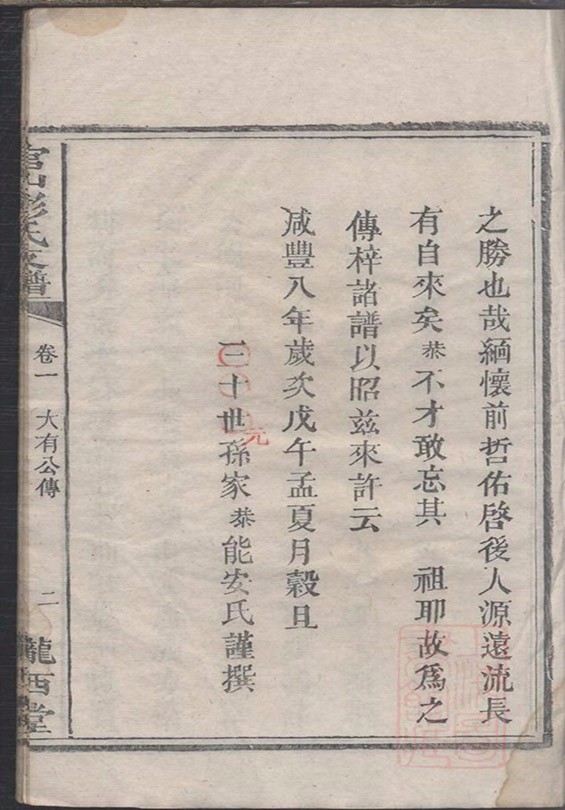 之勝也哉緬懷前哲佑啓後人源遠流長
有自來矣恭不才敢忘其　祖耶故爲之
傳梓諸譜以昭兹來許云
咸豐八年歲次戊午孟夏月穀旦
三十世孫家恭能安氏謹撰
元
彭氏支譜
卷一　大有公傳　二　隴西堂